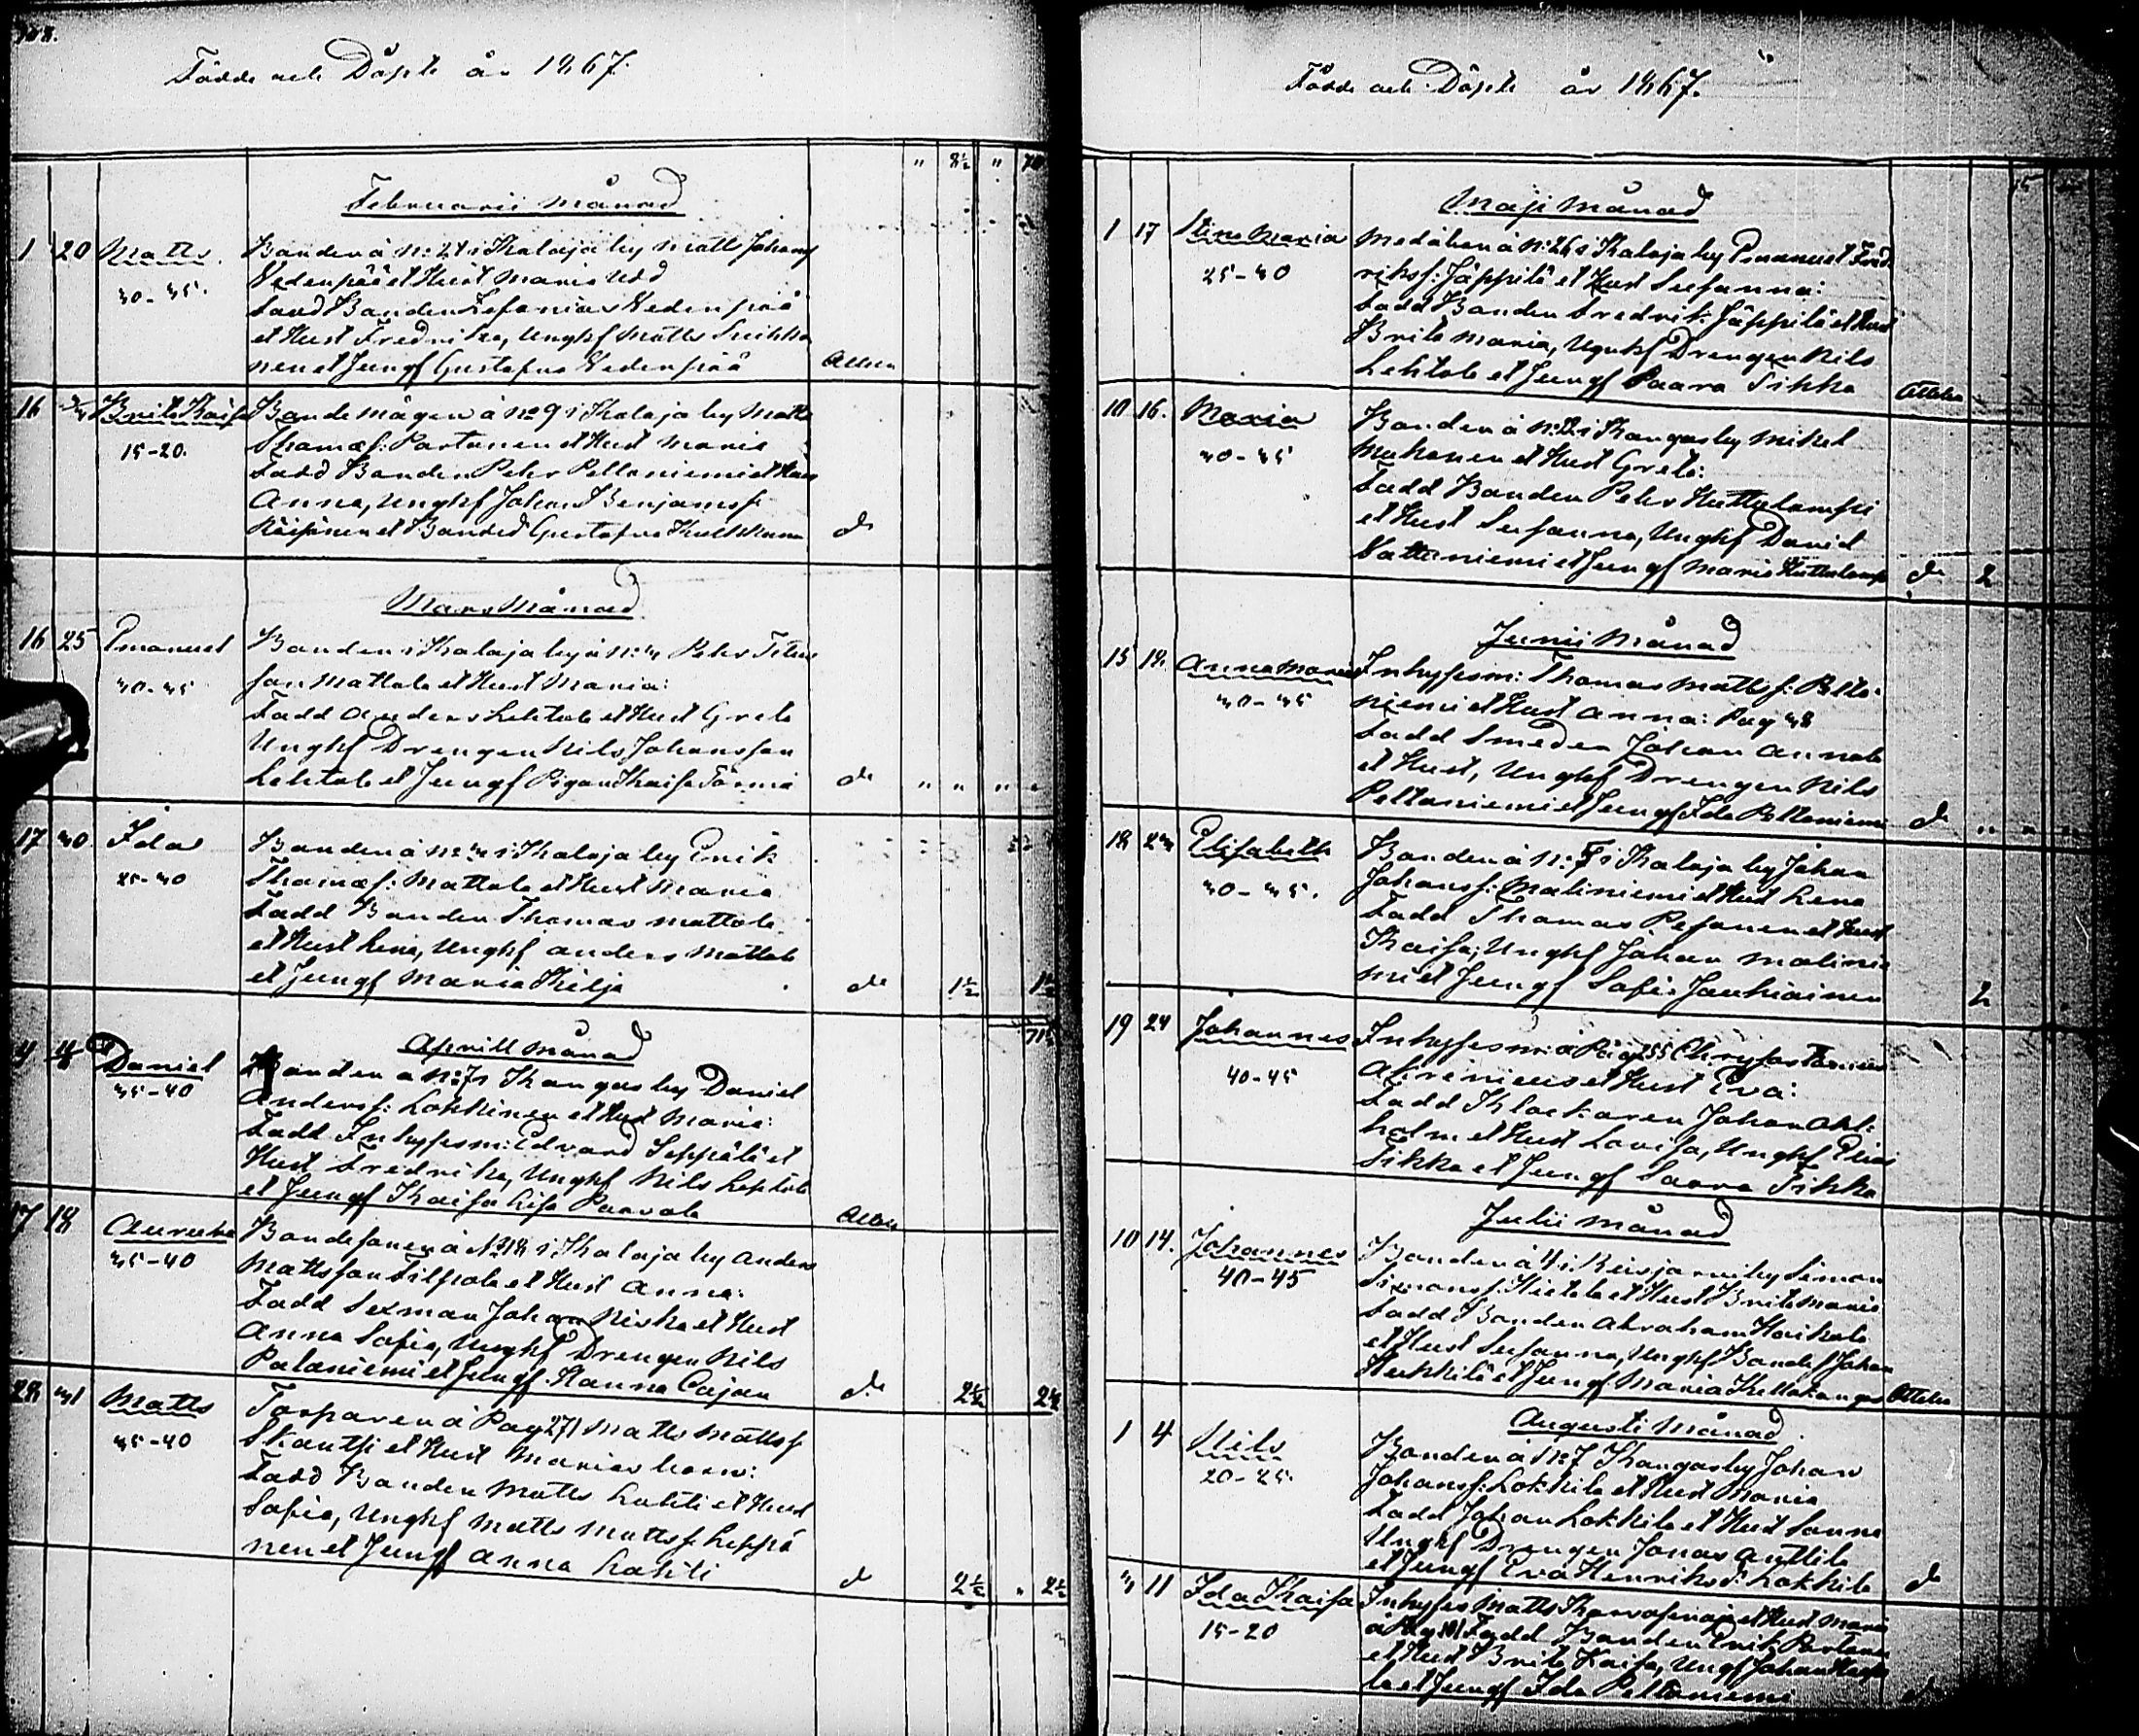 Födde och Döpte år 1867.
" 8½ "
Februarii månad
1 20 Matts. Bonden å N: 21 i Kalaja by Matts Johansf
30-35. Vedenpää et Hust Maria
Fadd Bonden Zefanias Vedenpää
et Hust Fredrika, Unghf Matts
nen et Jungf Gustafva Vedenpää
16 Brita Kaisa Bonde mågen å No 9 i Kalaja by Matts
15-20. Thomæf: Partanen et Hust Maria
Fadd Bonden Peter Peltoniemi et Hust
Anna, Unghf Johan Benjamsf
Räisänen et Gustafva do
Mars Månad
16 25 Emanuel Bonden i Kalaja by å N: Peter
30-35 son Mattola et Hust Maria:
Fadd Anders Lehtola et Hust Greta
Unghf Drengen Nils Johansson
Lehtola et Jungf Pigan Kaisa Törmä do " " " "
17 30 Ida Bonden å No i Kalaja by Erik
25-30 Thomæf: Mattola et Hust Maria
Fadd Bonden Thomas Mattola
et Hust Lena, Unghf Anders Mattola
et Jungf Maria Kilja do 1½ 1½
Aprill månad
Daniel Bonden å No: 7 i Kangas by Daniel
35-40 Andersf: Lokkinen et Hust Maria:
Fadd Inhysesm: Edvard Seppälä et
Hust Fredrika, Unghf Nils Lehtola
et Jungf Kaisa Lisa Paavola
17 18 Bondesonen å No 18 i Kalaja by Anders
35-40 Mattsson Filppola et Hust Anna:
Fadd Sexman Johan Niska et Hust
Anna Sofia, Unghf Drengen Nils
Palaniemi et Jungf. Hanna Cajan do 2½ 2½
28 31 Matts Torparen å Pag 271 Matts Mattsf
35-40 et Hust Maria
Fadd Bonden Matts Lahti et Hust
Sofia, Unghf Matts Mattsf Leppä
nen et Jungf Anna Lahti do 2½ " 2½
Födde och Döpte år 1867.
Maji månad
1 17 Stina Maria Medåboen å N: 26 i Kalaja by Emanuel Fred
25-30 riksf: Jäppilä et Hust Susanna:
Fadd Bonden Fredrik Jäppilä et Hust
Brita Maria, Unghf Drengen Nils
Lehtola et Jungf Saara Tikka
10 16. Maria Bonden å N: i Kangas by Mikel
30-35 Muhonen et Hust Greta:
Fadd Bonden Peter Huttulampi
et Hust Susanna, Unghf David
et Jungf Maria Huttulamp do 2
Junii Månad
15 19. Anna Maria Inhysesm: Thomas Mattsf: Pelto
30-35 niemi et Hust Anna: Pag 38
Fadd Smeden Johan Annala
et Hust, Unghf Drengen Nils
Peltoniemi et Jungf Ida Peltoniemi do " " "
18 23 Elisabeth Bonden å N: 7 i Kalaja by Johan
30-35. Johansf: Maliniemi et Hust Lena
Fadd Thomas Pesonen et Hust
Kaisa, Unghf Johan Malinie
mi et Jungf Sofia Jauhiainen 2
19 24 Johannes Inhysesm: å Pag 255
40-45 et Hust Eva:
Fadd Klockaren Johan Ahl-
holm et Hust Lovisa, Unghf Elias
Tikka et Jungf Saara Tikka
Julii månad
10 14. Johannes Bonden å 4 i Reisjärvi by Simon
40-45 Simonsf: Hietala et Hust Brita Maria
Fadd Bonden Abraham Haikola
et Hust Susanna, Unghf Bondes Johan
Hukkilä et Jungf Maria Kellokangas
Augusti månad
1 4 Nils Bonden å No 7 Kangasby Johan
20-25 Johansf: Lokkila et Hust Maria
Fadd Johan Lokkila et Hust Sanna
Unghf Drengen Jonas Anttila
et Jungf Eva Henriksd: Lokkila do
3 11 Ida Kaisa Inhyses Matts et Hust Maria
15-20 å Pag Fadd Bonden Erik Partanen
et Hust Brita Kaisa, Ungf Johan
la et Jungf Ida Peltoniemi